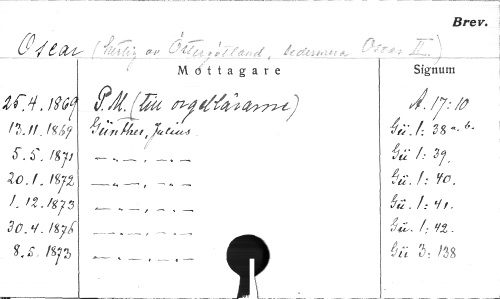 Brev.
Oscar (hertig av Östergötland, sedermera Oscar II.)
Mottagare Signum
25.4.1869 P.M. (till orgelläraren) A. 17:10
13.11.1869 Günther, Julius. Gü. 1: 38 a. b.
5.5.1871 —„—, —„— Gü. 1: 39.
20.1.1872 —„—, —„— Gü. 1: 40.
1.12.1873 —„—, —„— Gü. 1: 41.
30.4.1876 —„—, —„— Gü. 1: 42.
8.5.1873 —„—, —„— Gü 3: 138